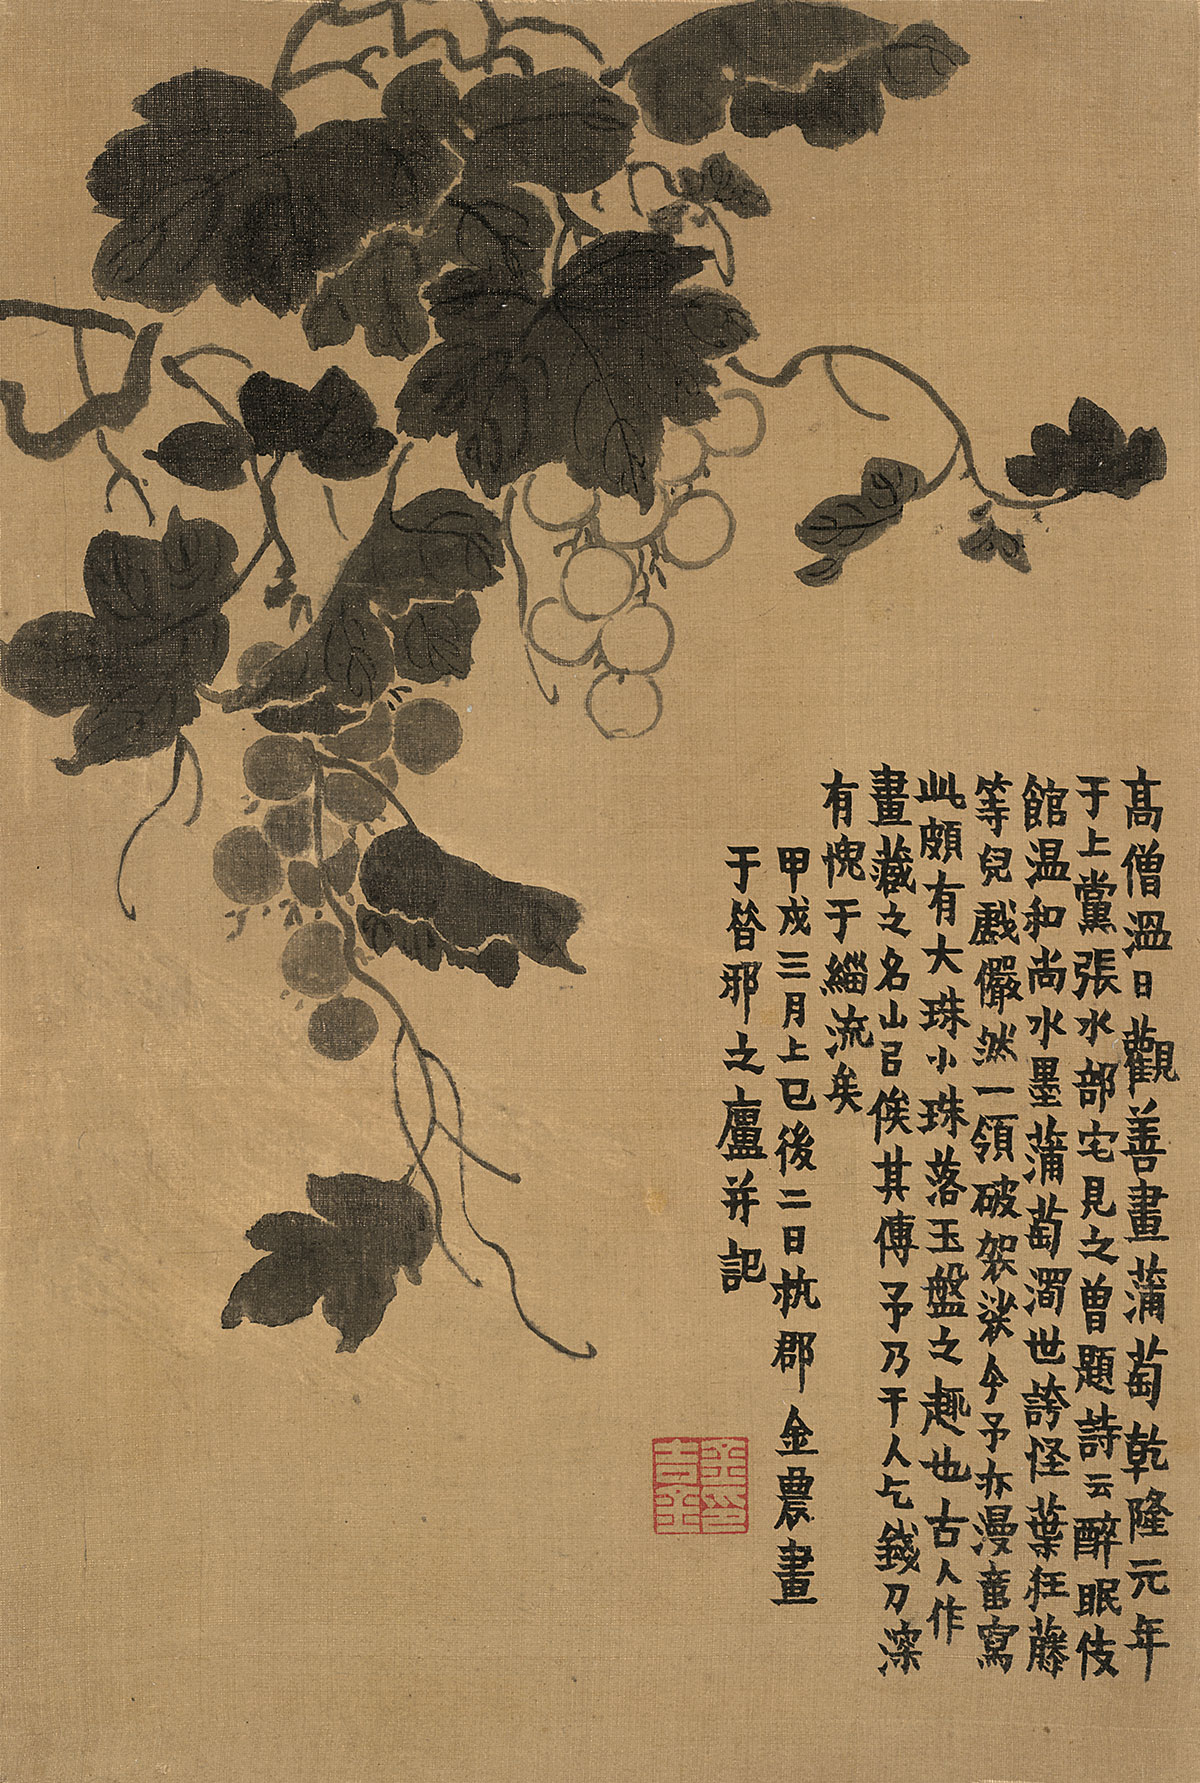 高僧溫日觀善畫蒲萄乾隆元年
于上黨張水部宅見之曾題詩云醉眠伎
館温和尚水墨蒲萄濁世誇怪葉狂藤
等兒戲儼然一領破袈裟今予亦漫畫寫
此頗有大珠小珠落玉盤之趣也古人作
畫藏之名山㠯俟其傳予乃干人乞錢刀深
有愧于緇流矣
甲戌三月上巳後二日杭郡金農畫
于昝邪之廬并記